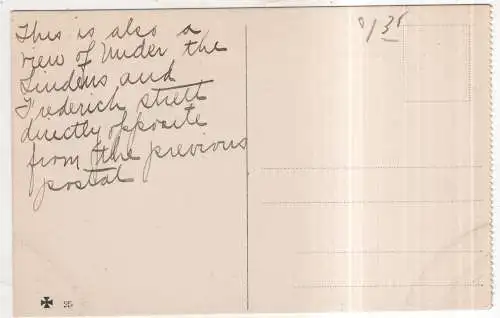 This is also a
view of Under the
Lindens and
Frederich strett
directly opposite
from the previous
postal
25